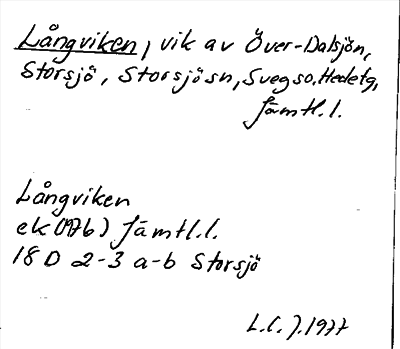 Långviken, vik av Över-Dalsjön,
Storsjö, Storsjö sn, Svegs o. Hede tg,
Jämtl.l.
Långviken
ek (1976) Jämtl.l.
18 D 2-3 a-b Storsjö
L.C.J. 1977